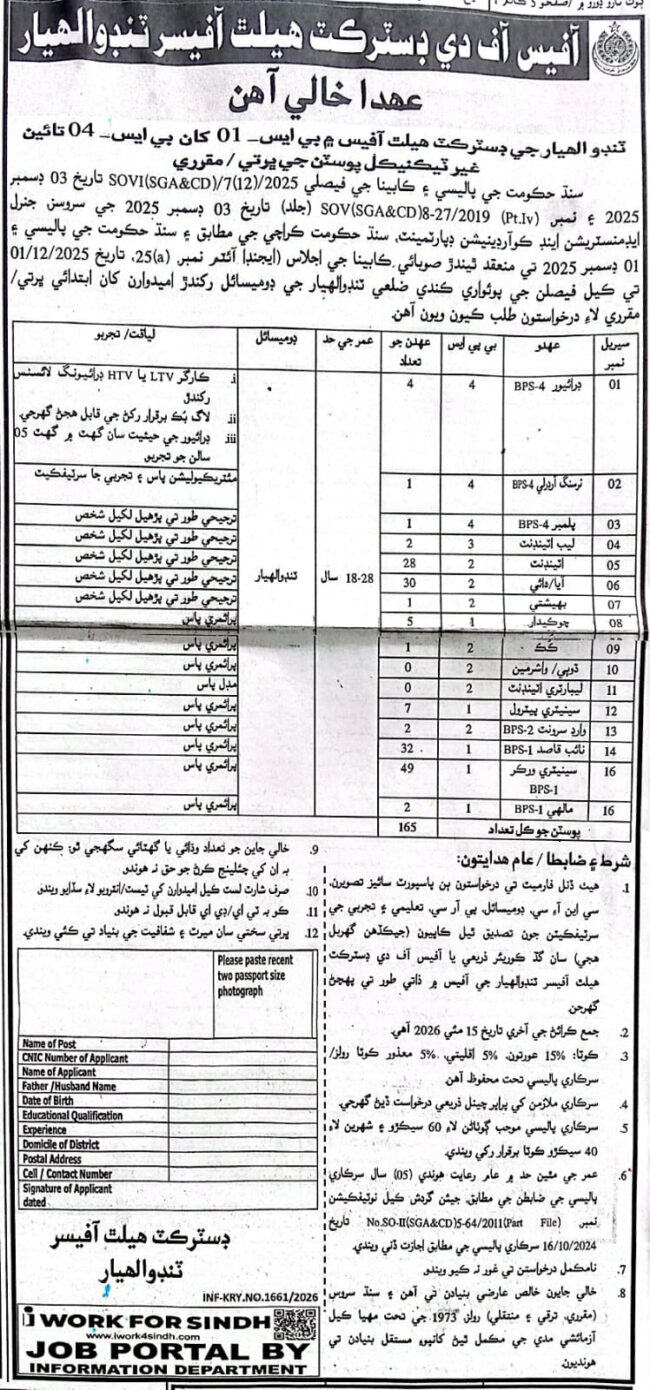 آفيس آف دي ڊسٽرڪٽ هيلٿ آفيسر ٽنڊوالهيار
عهدا خالي آهن
ٽنڊو الهيار جي ڊسٽرڪٽ هيلٿ آفيس ۾ بي ايس۔ 01 کان بي ايس۔ 04 تائين
غير ٽيڪنيڪل پوسٽن جي ڀرتي / مقرري
سنڌ حڪومت جي پاليسي ۽ ڪابينا جي فيصلي SOVI(SGA&CD)/7(12)/2025 تاريخ 03 ڊسمبر
2025 ۽ نمبر SOV(SGA&CD)8-27/2019 (Pt.Iv) (جلد) تاريخ 03 ڊسمبر 2025 جي سروسز جنرل
ايڊمنسٽريشن اينڊ ڪوآرڊينيشن ڊپارٽمينٽ، سنڌ حڪومت ڪراچي جي مطابق ۽ سنڌ حڪومت جي پاليسي ۽
01 ڊسمبر 2025 تي منعقد ٿيندڙ صوبائي ڪابينا جي اجلاس (ايجنڊا آئٽم نمبر 25(a)، تاريخ 01/12/2025
تي ڪيل فيصلن جي پوئواري ڪندي ضلعي ٽنڊوالهيار جي ڊوميسائل رکندڙ اميدوارن کان ابتدائي ڀرتي/
مقرري لاءِ درخواستون طلب ڪيون ويون آهن.
سيريل نمبر | عهدو | بي پي ايس | عهدن جو تعداد | عمر جي حد | ڊوميسائل | لياقت/ تجربو
01 | ڊرائيور BPS-4 | 4 | 4 | 18-28 سال | ٽنڊوالهيار | i. ڪارگر LTV يا HTV ڊرائيونگ لائسنس رکندڙ
ii. لاگ بُڪ برقرار رکڻ جي قابل هجڻ گهرجي.
iii. ڊرائيور جي حيثيت سان گهٽ ۾ گهٽ 05 سالن جو تجربو.
02 | نرسنگ آرڊرلي BPS-4 | 4 | 1 | مئٽريڪيوليشن پاس ۽ تجربي جا سرٽيفڪيٽ
03 | پلمبر BPS-4 | 4 | 1 | ترجيحي طور تي پڙهيل لکيل شخص
04 | ليب اٽينڊنٽ | 3 | 2 | ترجيحي طور تي پڙهيل لکيل شخص
05 | اٽينڊنٽ | 2 | 28 | ترجيحي طور تي پڙهيل لکيل شخص
06 | آيا/دائي | 2 | 30 | ترجيحي طور تي پڙهيل لکيل شخص
07 | بهيشتي | 2 | 1 | ترجيحي طور تي پڙهيل لکيل شخص
08 | چوڪيدار | 1 | 5 | پرائمري پاس
09 | ڪُڪ | 2 | 1 | پرائمري پاس
10 | ڌوٻي/ واشرمين | 2 | 0 | پرائمري پاس
11 | ليبارٽري اٽينڊنٽ | 2 | 0 | مڊل پاس
12 | سينيٽري پيٽرول | 1 | 7 | پرائمري پاس
13 | وارڊ سرونٽ BPS-2 | 2 | 2 | پرائمري پاس
14 | نائب قاصد BPS-1 | 1 | 32 | پرائمري پاس
16 | سينيٽري ورڪر BPS-1 | 1 | 49 | پرائمري پاس
16 | مالهي BPS-1 | 1 | 2 | پرائمري پاس
پوسٽن جو ڪل تعداد | 165
شرط ۽ ضابطا / عام هدايتون:
1. هيٺ ڏنل فارميٽ تي درخواستون ٻن پاسپورٽ سائيز تصويرن،
سي اين آءِ سي، ڊوميسائل، پي آر سي، تعليمي ۽ تجربي جي
سرٽيفڪيٽن جون تصديق ٿيل ڪاپيون (جيڪڏهن گهربل
هجي) سان گڏ ڪوريئر ذريعي يا آفيس آف دي ڊسٽرڪٽ
هيلٿ آفيسر ٽنڊوالهيار جي آفيس ۾ ذاتي طور تي پهچڻ
گهرجن.
2. جمع ڪرائڻ جي آخري تاريخ 15 مئي 2026 آهي.
3. ڪوٽا: 15% عورتون، 5% اقليتي، 5% معذور ڪوٽا رولز/
سرڪاري پاليسي تحت محفوظ آهن.
4. سرڪاري ملازمن کي پراپر چينل ذريعي درخواست ڏيڻ گهرجي.
5. سرڪاري پاليسي موجب ڳوٺاڻن لاءِ 60 سيڪڙو ۽ شهرين لاءِ
40 سيڪڙو ڪوٽا برقرار رکي ويندي.
6. عمر جي مٿين حد ۾ عام رعايت هوندي (05) سال سرڪاري
پاليسي جي ضابطن جي مطابق، جيئن گردش ڪيل نوٽيفڪيشن
نمبر No.SO-II(SGA&CD)5-64/2011(Part File) تاريخ
16/10/2024 سرڪاري پاليسي جي مطابق اجازت ڏني ويندي.
7. نامڪمل درخواستن تي غور نه ڪيو ويندو.
8. خالي جايون خالص عارضي بنيادن تي آهن ۽ سنڌ سروس
(مقرري، ترقي ۽ منتقلي) رولز 1973 جي تحت مهيا ڪيل
آزمائشي مدي جي مڪمل ٿيڻ کانپوءِ مستقل بنيادن تي
هونديون.
9. خالي جاين جو تعداد وڌائي يا گهٽائي سگهجي ٿو، ڪنهن کي
به ان کي چئلينج ڪرڻ جو حق نه هوندو.
10. صرف شارٽ لسٽ ڪيل اميدوارن کي ٽيسٽ/انٽرويو لاءِ سڏايو ويندو.
11. ڪو به ٽي اي/ڊي اي قابل قبول نه هوندو.
12. ڀرتي سختي سان ميرٽ ۽ شفافيت جي بنياد تي ڪئي ويندي.
Please paste recent
two passport size
photograph
Name of Post
CNIC Number of Applicant
Name of Applicant
Father /Husband Name
Date of Birth
Educational Qualification
Experience
Domicile of District
Postal Address
Cell / Contact Number
Signature of Applicant
dated
ڊسٽرڪٽ هيلٿ آفيسر
ٽنڊوالهيار
INF-KRY.NO.1661/2026
i WORK FOR SINDH
www.iwork4sindh.com
JOB PORTAL BY
INFORMATION DEPARTMENT